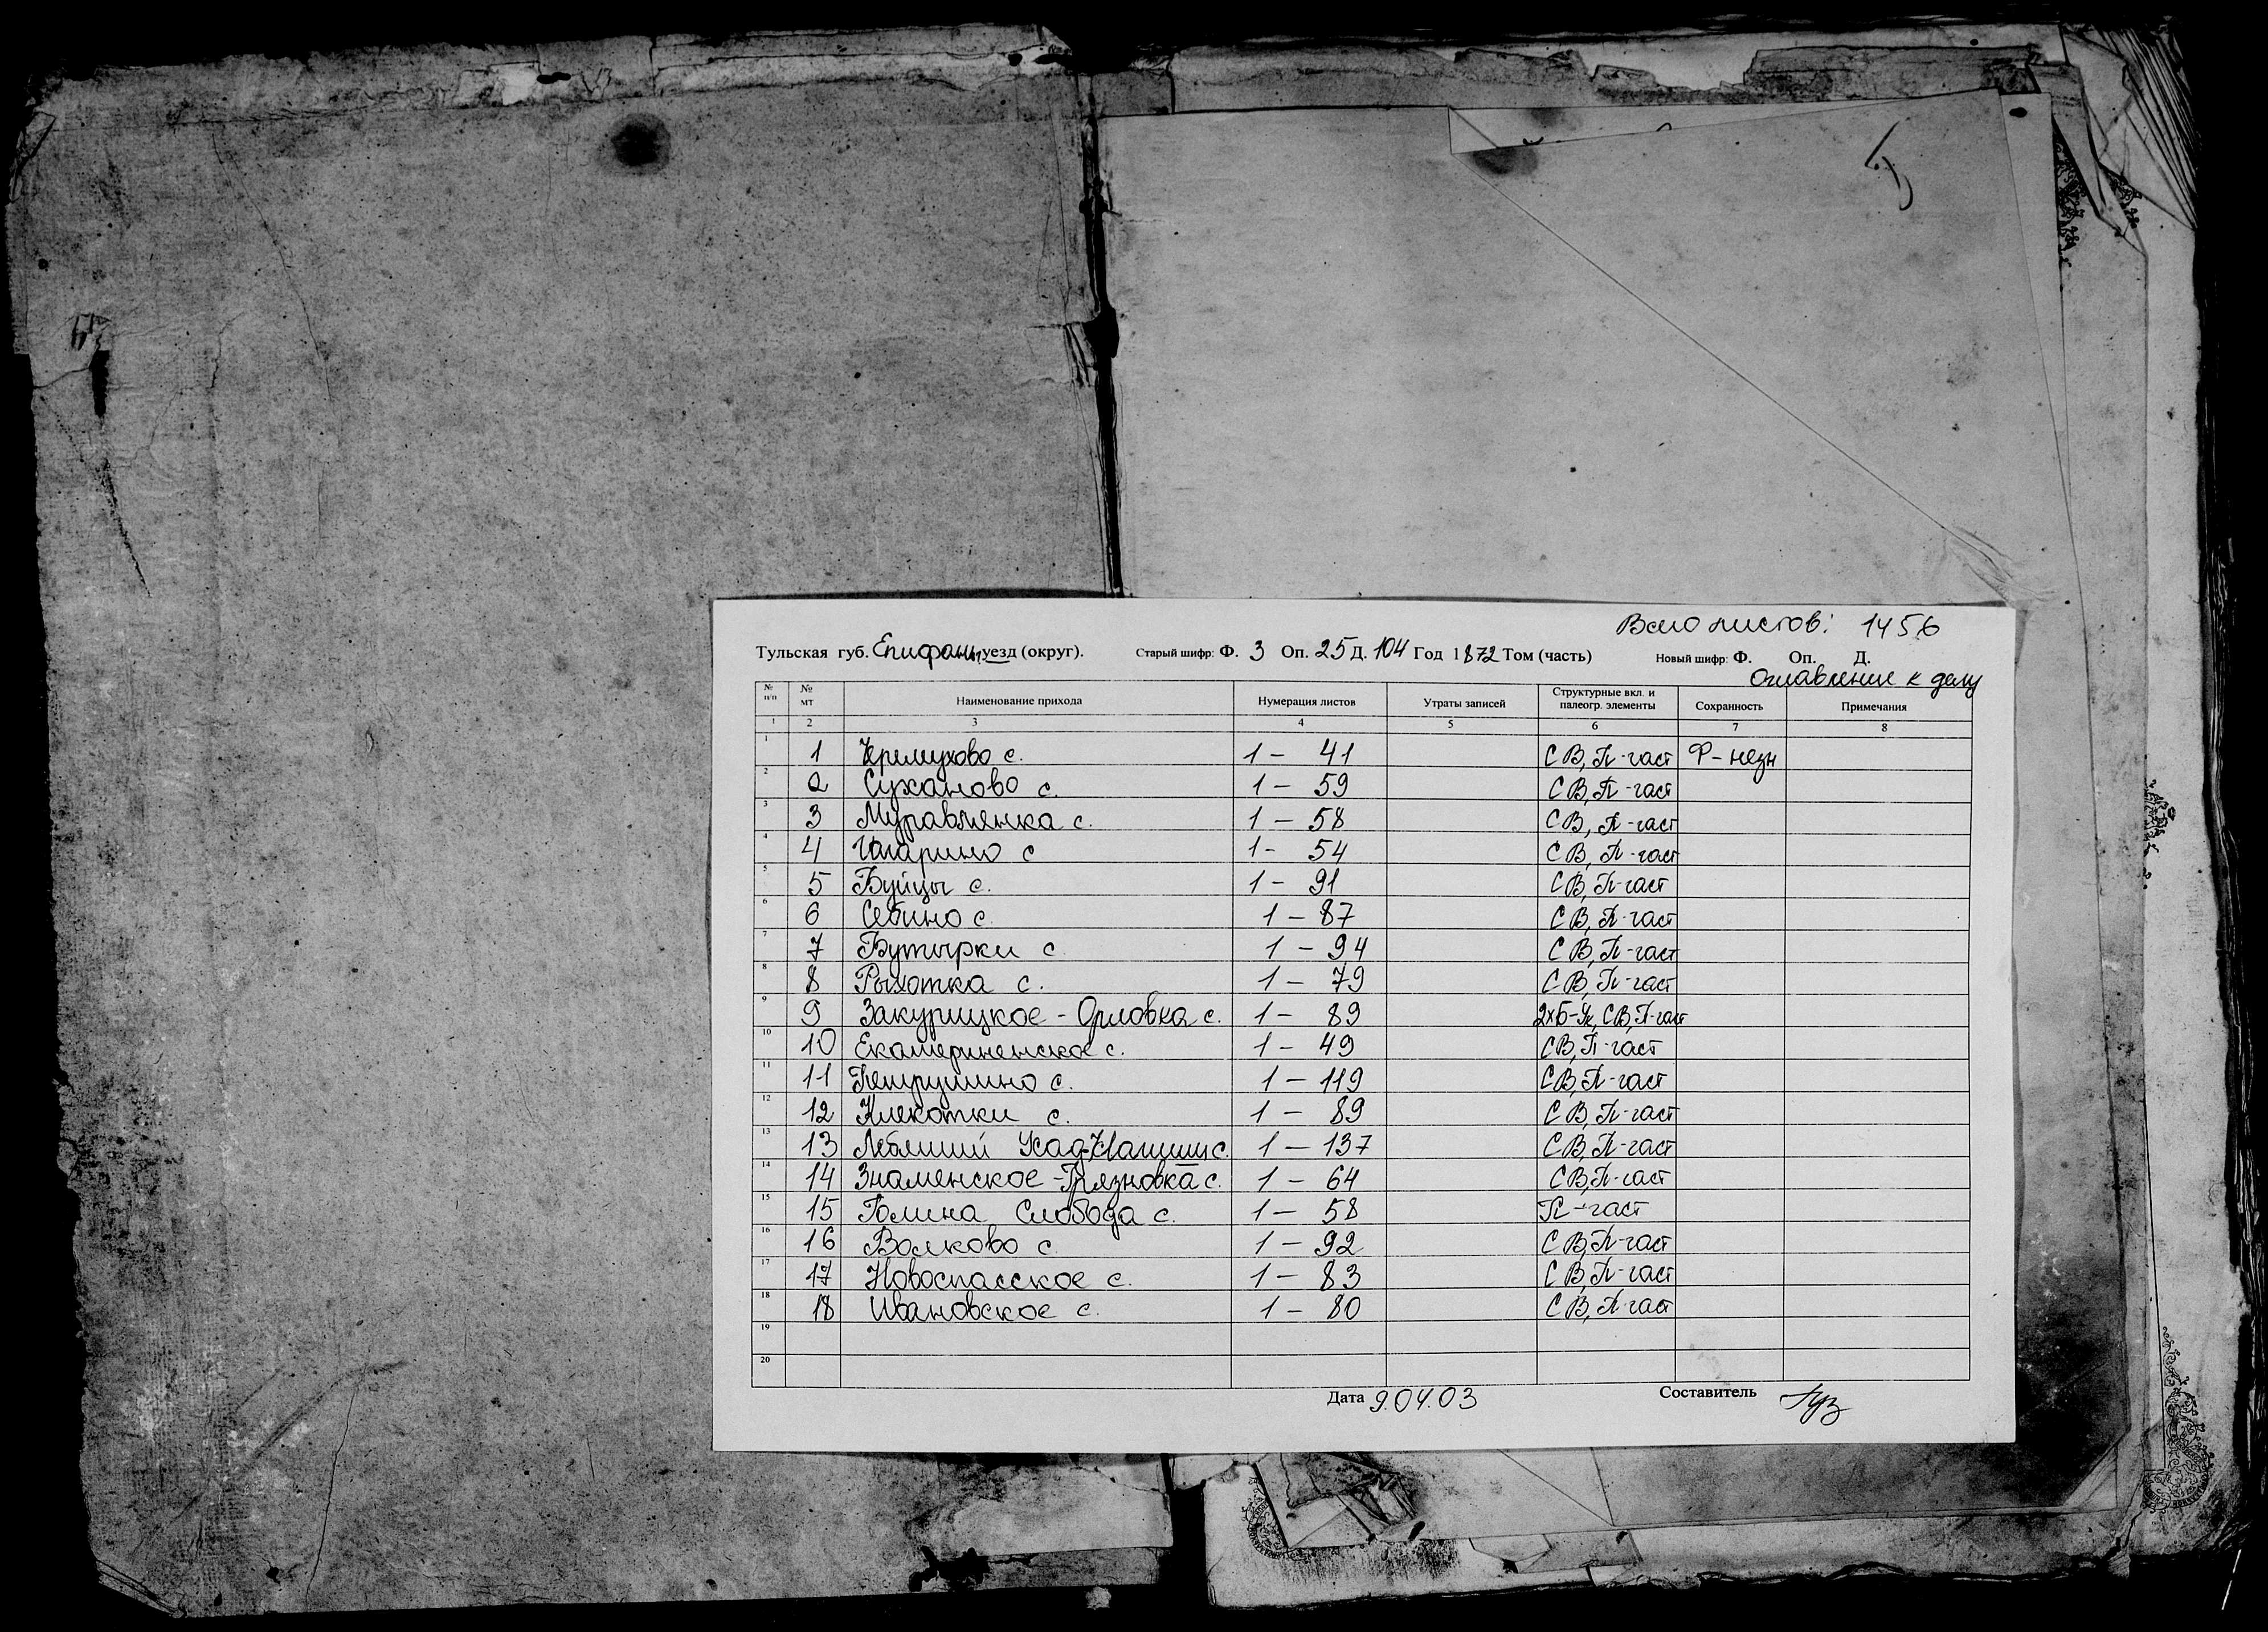 Всего листов: 1456
Тульская губ. Епифан. уезд (округ). Старый шифр: Ф. 3 Оп. 25 Д. 104 Год 1872 Том (часть) Новый шифр: Ф. Оп. Д.
Оглавление к делу
№ п/п № мт Наименование прихода Нумерация листов Утраты записей Структурные вкл. и палеогр. элементы Сохранность Примечания
1 2 3 4 5 6 7 8
1 1 Черемухово с. 1 – 41 СВ, П-част Ф – незн
2 2 Суханово с. 1 – 59 СВ, П-част
3 3 Муравлянка с. 1 – 58 СВ, П-част
4 4 Гагарино с 1 - 54 СВ, П-част
5 5 Буйцы с. 1 – 91 СВ, П-част
6 6 Себино с. 1 – 87 СВ, П-част
7 7 Бутырки с 1 – 94 СВ, П-част
8 8 Рыхотка с. 1 – 79 СВ, П-част
9 9 Закурицкое - Орловка с. 1 – 89 СВ, П-част
10 10 Екатериненское с. 1 – 49 СВ, П-част
11 11 Петрушино с. 1 – 119 СВ, П-част
12 12 Клекотки с. 1 – 89 СВ, П-част
13 13 с. 1 – 137 СВ, П-част
14 14 Знаменское - Грязновка с. 1 – 64 СВ, П-част
15 15 Голина Слобода с. 1 – 58 П – част
16 16 Волково с 1 – 92 СВ, П-част
17 17 Новоспасское с. 1 – 83 СВ, П-част
18 18 Ивановское с. 1 – 80 СВ, П-част
19
20
Дата 9.04.03 Составитель